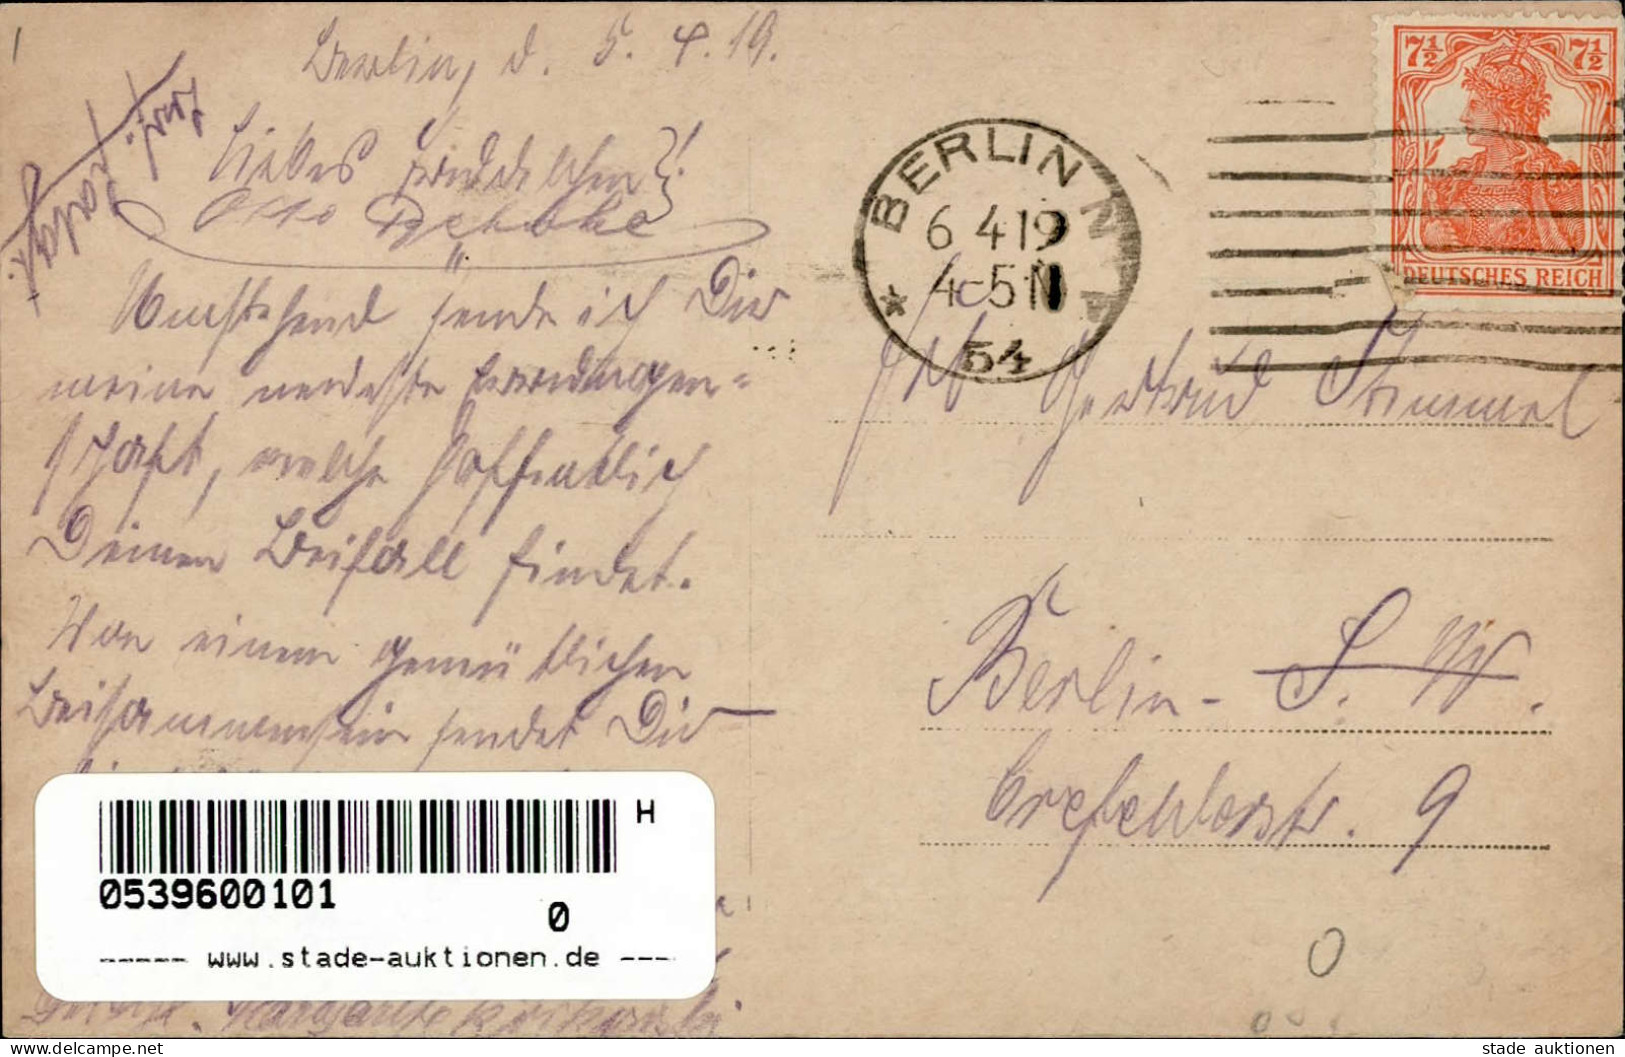 Berlin, d. 5. 4. 19.
Liebes Friedelchen!
Otto
Umstehend sende ich Dir
meine neueste Errungen=
schaft, welche hoffentlich
Deinen Beifall findet.
Von einem gemütlichen
Beisammensein sendet Dir
Margarete
BERLIN N
6 4 19
4-5 N
* 54
7½ 7½
DEUTSCHES REICH
Gertrud Stimmel
Berlin - S. W.
Crefelderstr. 9
H
0539600101
0
----- www.stade-auktionen.de ---
0
www.delcampe.net
stade auktionen